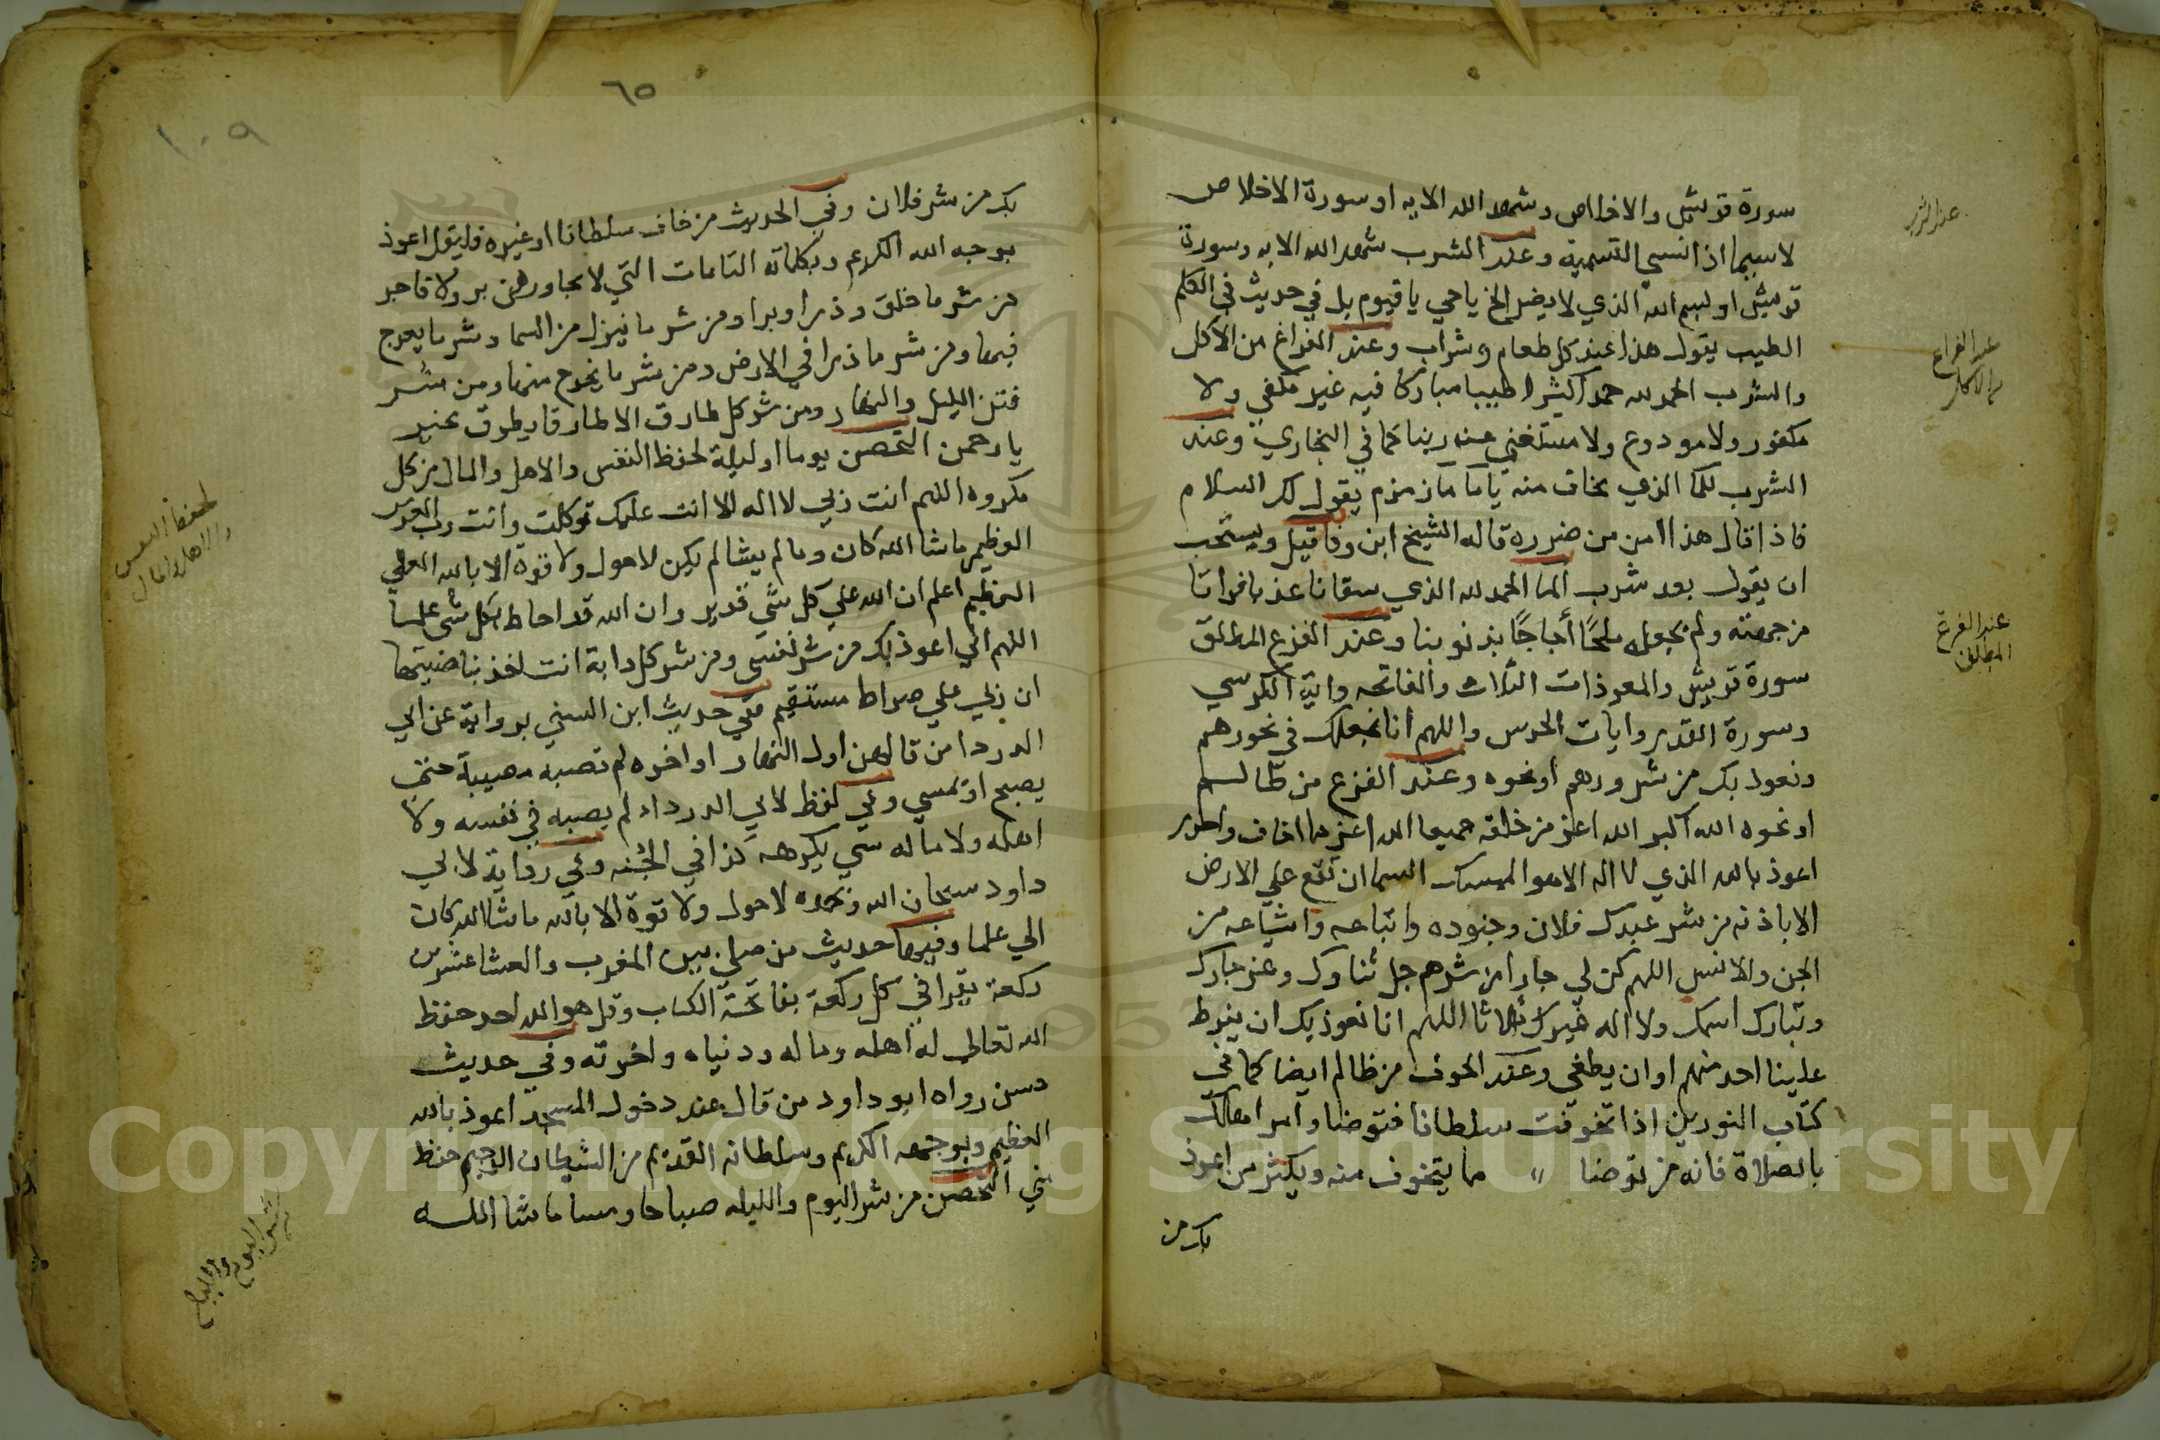 سورة قريش والاخلاص وشهد الله الايه او سورة الاخلاص
لاسيما اذا نسي التسمية وعند الشرب شهد الله الايه وسورة
قريش او بسم الله الذي لا يضر الخ يا حي يا قيوم بل في حديث في الكلم
الطيب يقول هذا عند كل طعام وشراب وعند الفراغ من الاكل
والشرب الحمد لله حمدا كثيرا طيبا مباركا فيه غير مكفي ولا
مكفور ولا مودع ولا مستغني عنه ربنا كما في البخاري وعند
الشرب للما الذي يخاف منه يا ما ما زمزم يقول لك السلام
فاذا قال هذا امن من ضرره قاله الشيخ ابن وفا قيل ويستحب
ان يقول بعد شرب الما الحمد لله الذي سقانا عذبا فراتا
من جهته ولم يجعله ملحًا أجاجًا بذنوبنا وعند الفزع المطلق
سورة قريش والمعوذات الثلاث والفاتحه واية الكرسي
وسورة القدر وايات الحرس واللهم انا نجعلك في نحورهم
ونعوذ بك من شرورهم او نحوه وعند الفزع من ظالم
او نحوه الله اكبر الله اعز من خلقه جميعا الله اعز مما اخاف واحذر
اعوذ بالله الذي لا اله الا هو الممسك السما ان تقع علي الارض
الا باذنه من شر عبدك فلان وجنوده واتباعه واشياعه من
الجن والانس اللهم كن لي جارا من شرهم جل ثناوك وعز جارك
وتبارك اسمك ولا اله غيرك ثلاثا اللهم انا نعوذ بك ان يفرط
علينا احد منهم او ان يطغي وعند الخوف من ظالم ايضا كما في
كتاب النورين اذا تخوفت سلطانا فتوضا وامر اهلك
بالصلاة فانه من توضا " مما يتخوف منه ويكثر من اعوذ
بك من
عند الشرب
عند الفراغ
من الاكل
عند الفزع
المطلق
٦٥
١٠٩
بك من شر فلان وفي الحديث من خاف سلطانا او غيره فليقل اعوذ
بوجه الله الكريم وبكلماته التامات التي لا يجاوزهن بر ولا فاجر
من شر ما خلق وذرا وبرا ومن شر ما ينزل من السما وشر ما يعرج
فيها ومن شر ما ذرا في الارض ومن شر ما يخرج منها ومن شر
فتن الليل والنهار ومن شر كل طارق الا طارقا يطرق بخير
يا رحمن التحصن يوما او ليلة لحفظ النفس والاهل والمال من كل
مكروه اللهم انت ربي لا اله الا انت عليك توكلت وانت رب العرش
العظيم ما شا الله كان وما لم يشا لم يكن لا حول ولا قوة الا بالله العلي
العظيم اعلم ان الله علي كل شي قدير وان الله قد احاط بكل شي علما
اللهم اني اعوذ بك من شر نفسي ومن شر كل دابة انت اخذ بناصيتها
ان ربي علي صراط مستقيم ففي حديث ابن السني برواية عن ابي
الدردا من قالهن اول النهار او اخره لم تصبه مصيبة حتى
يصبح او يمسي وفي لفظ لابي الدرداء لم يصبه في نفسه ولا
اهله ولا ماله شي يكرهه كذا في الجنه وفي رواية لابي
داود سبحان الله وبحمده لا حول ولا قوة الا بالله ما شا الله كان
الي علما وفيها حديث من صلي بين المغرب والعشا عشرين
ركعة يقرا في كل ركعة بفاتحة الكتاب وقل هو الله احد حفظ
الله تعالى له اهله وماله ودنياه واخرته وفي حديث
حسن رواه ابو داود من قال عند دخول المسجد اعوذ بالله
العظيم وبوجهه الكريم وسلطانه القديم من الشيطان الرجيم حفظ
مني التحصن من شر اليوم والليله صباحا ومسا ما شا الله
لحفظ النفس
والاهل والمال
شر اليوم
والليلة
Copyright © King Saud University